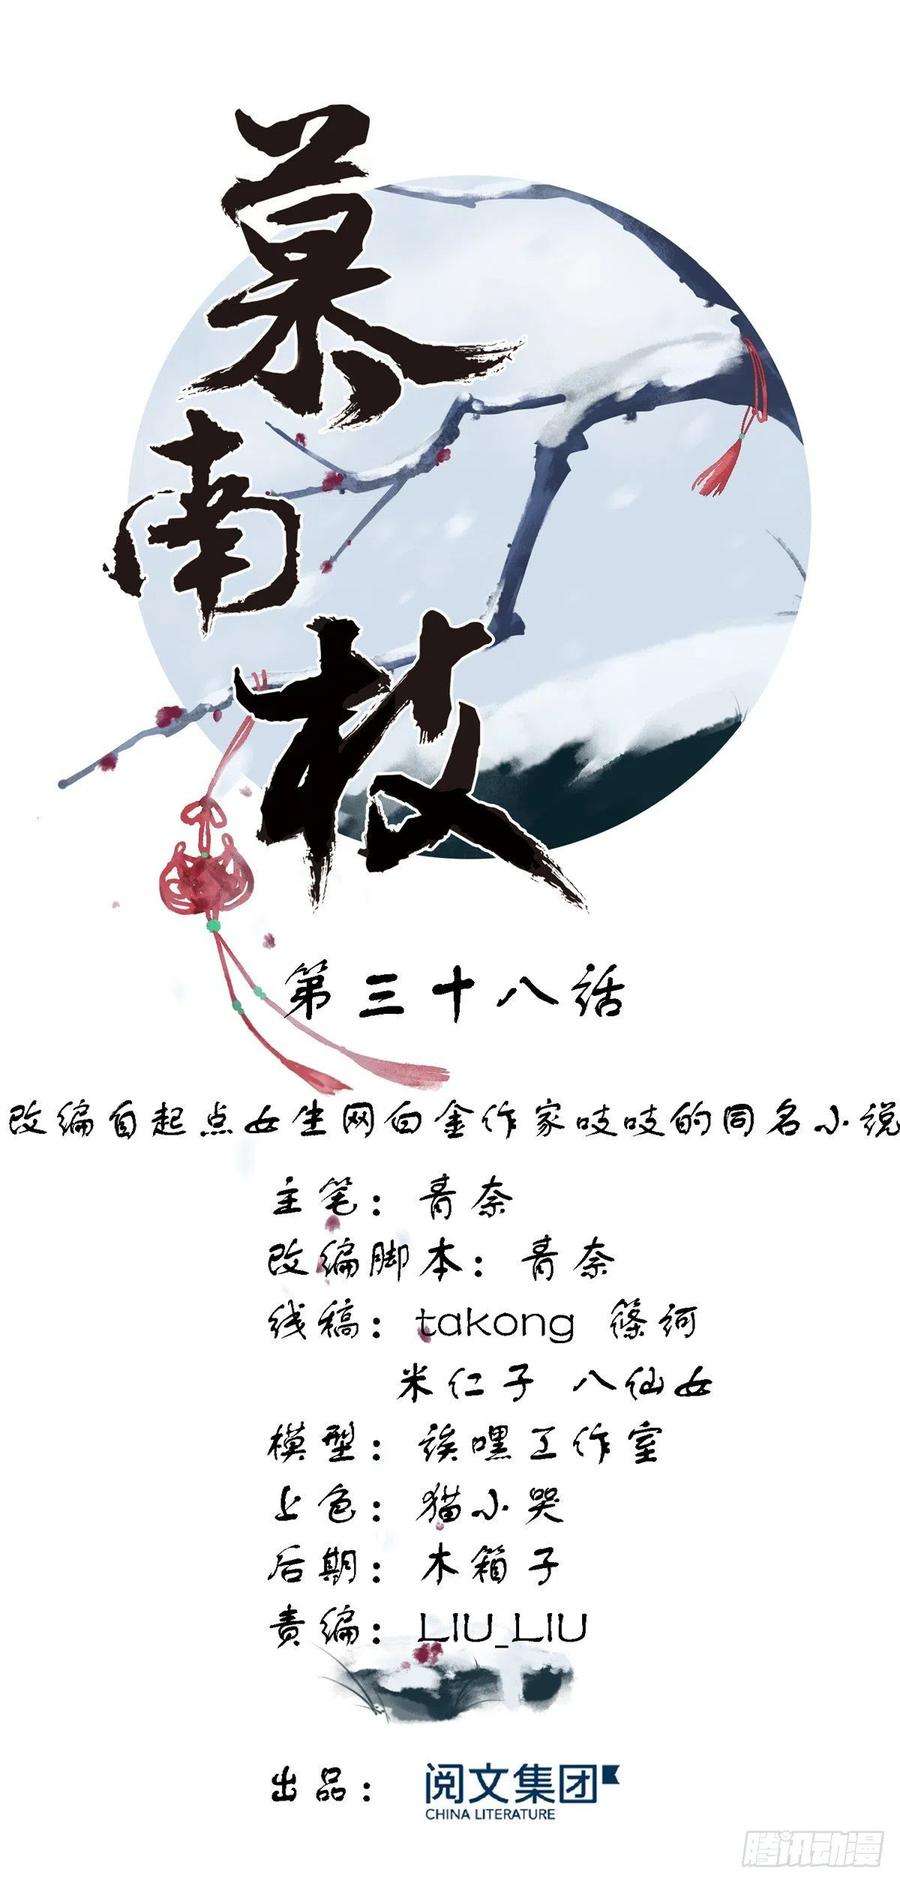 慕南枝
第三十八话
改编自起点女生网白金作家吱吱的同名小说
主笔：青奈
改编脚本：青奈
线稿：takong 篠河
米仁子 八仙女
模型：诶嘿工作室
上色：猫小哭
后期：木箱子
责编：LIU_LIU
出品：阅文集团
CHINA LITERATURE
腾讯动漫